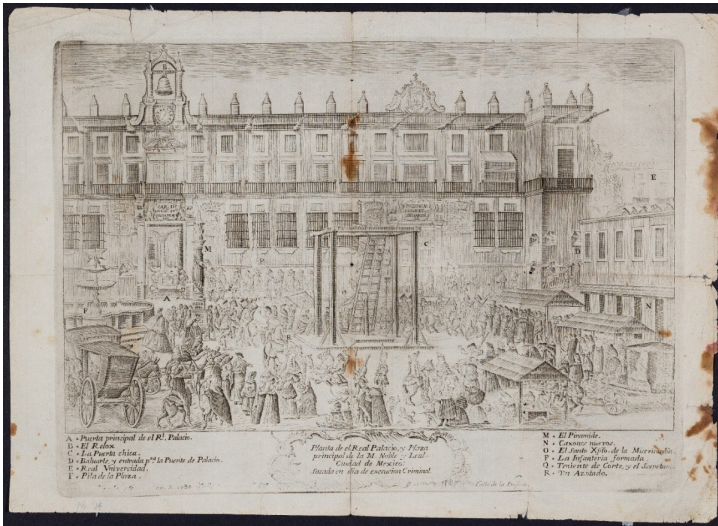 A. Puerta principal de el Rl. Palacio.
B. El Relox
C. La Puerta chica
D. Baluarte, y entrada pa. la Puente de Palacio.
E. Real Universidad.
F. Pila de la Plaza.
Planta de el Real Palacio, y Plaza
principal de la M. Noble y Leal
Ciudad de Mexico.
Sacado en dia de execucion Criminal
M. El Piramide.
N. Caxones nuevos.
O. El Santo Xpto. de la Misericordia
P. La Infanteria formada
Q. Teniente de Corte, y el Secretar.
R. Un Azotado.
A
M
P
C
D
E
N